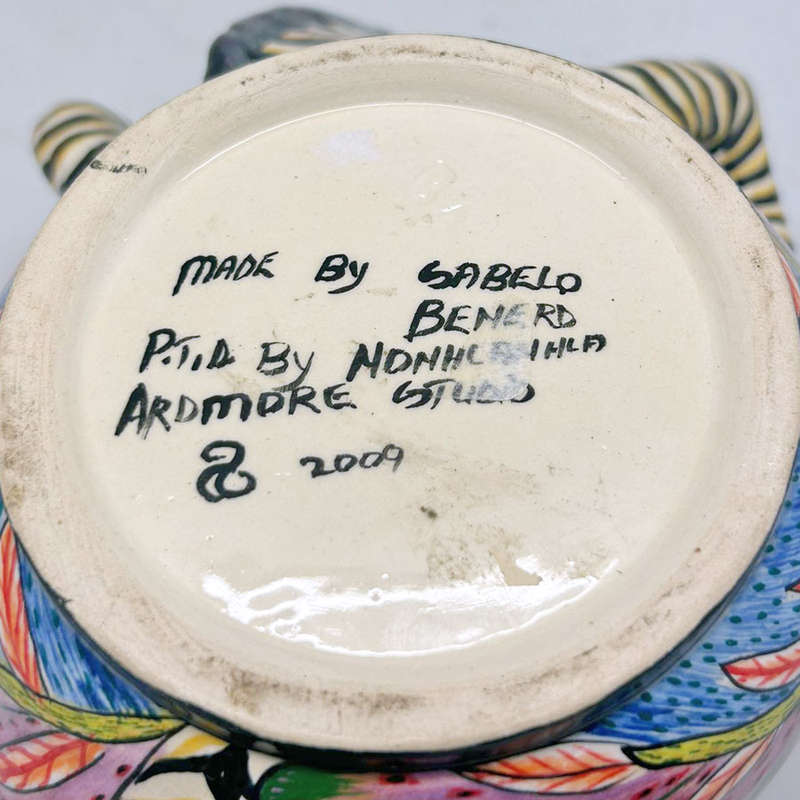 MADE By SABELO
BENERD
P.T.D By NONHLANHLA
ARDMORE STUDIO
2009